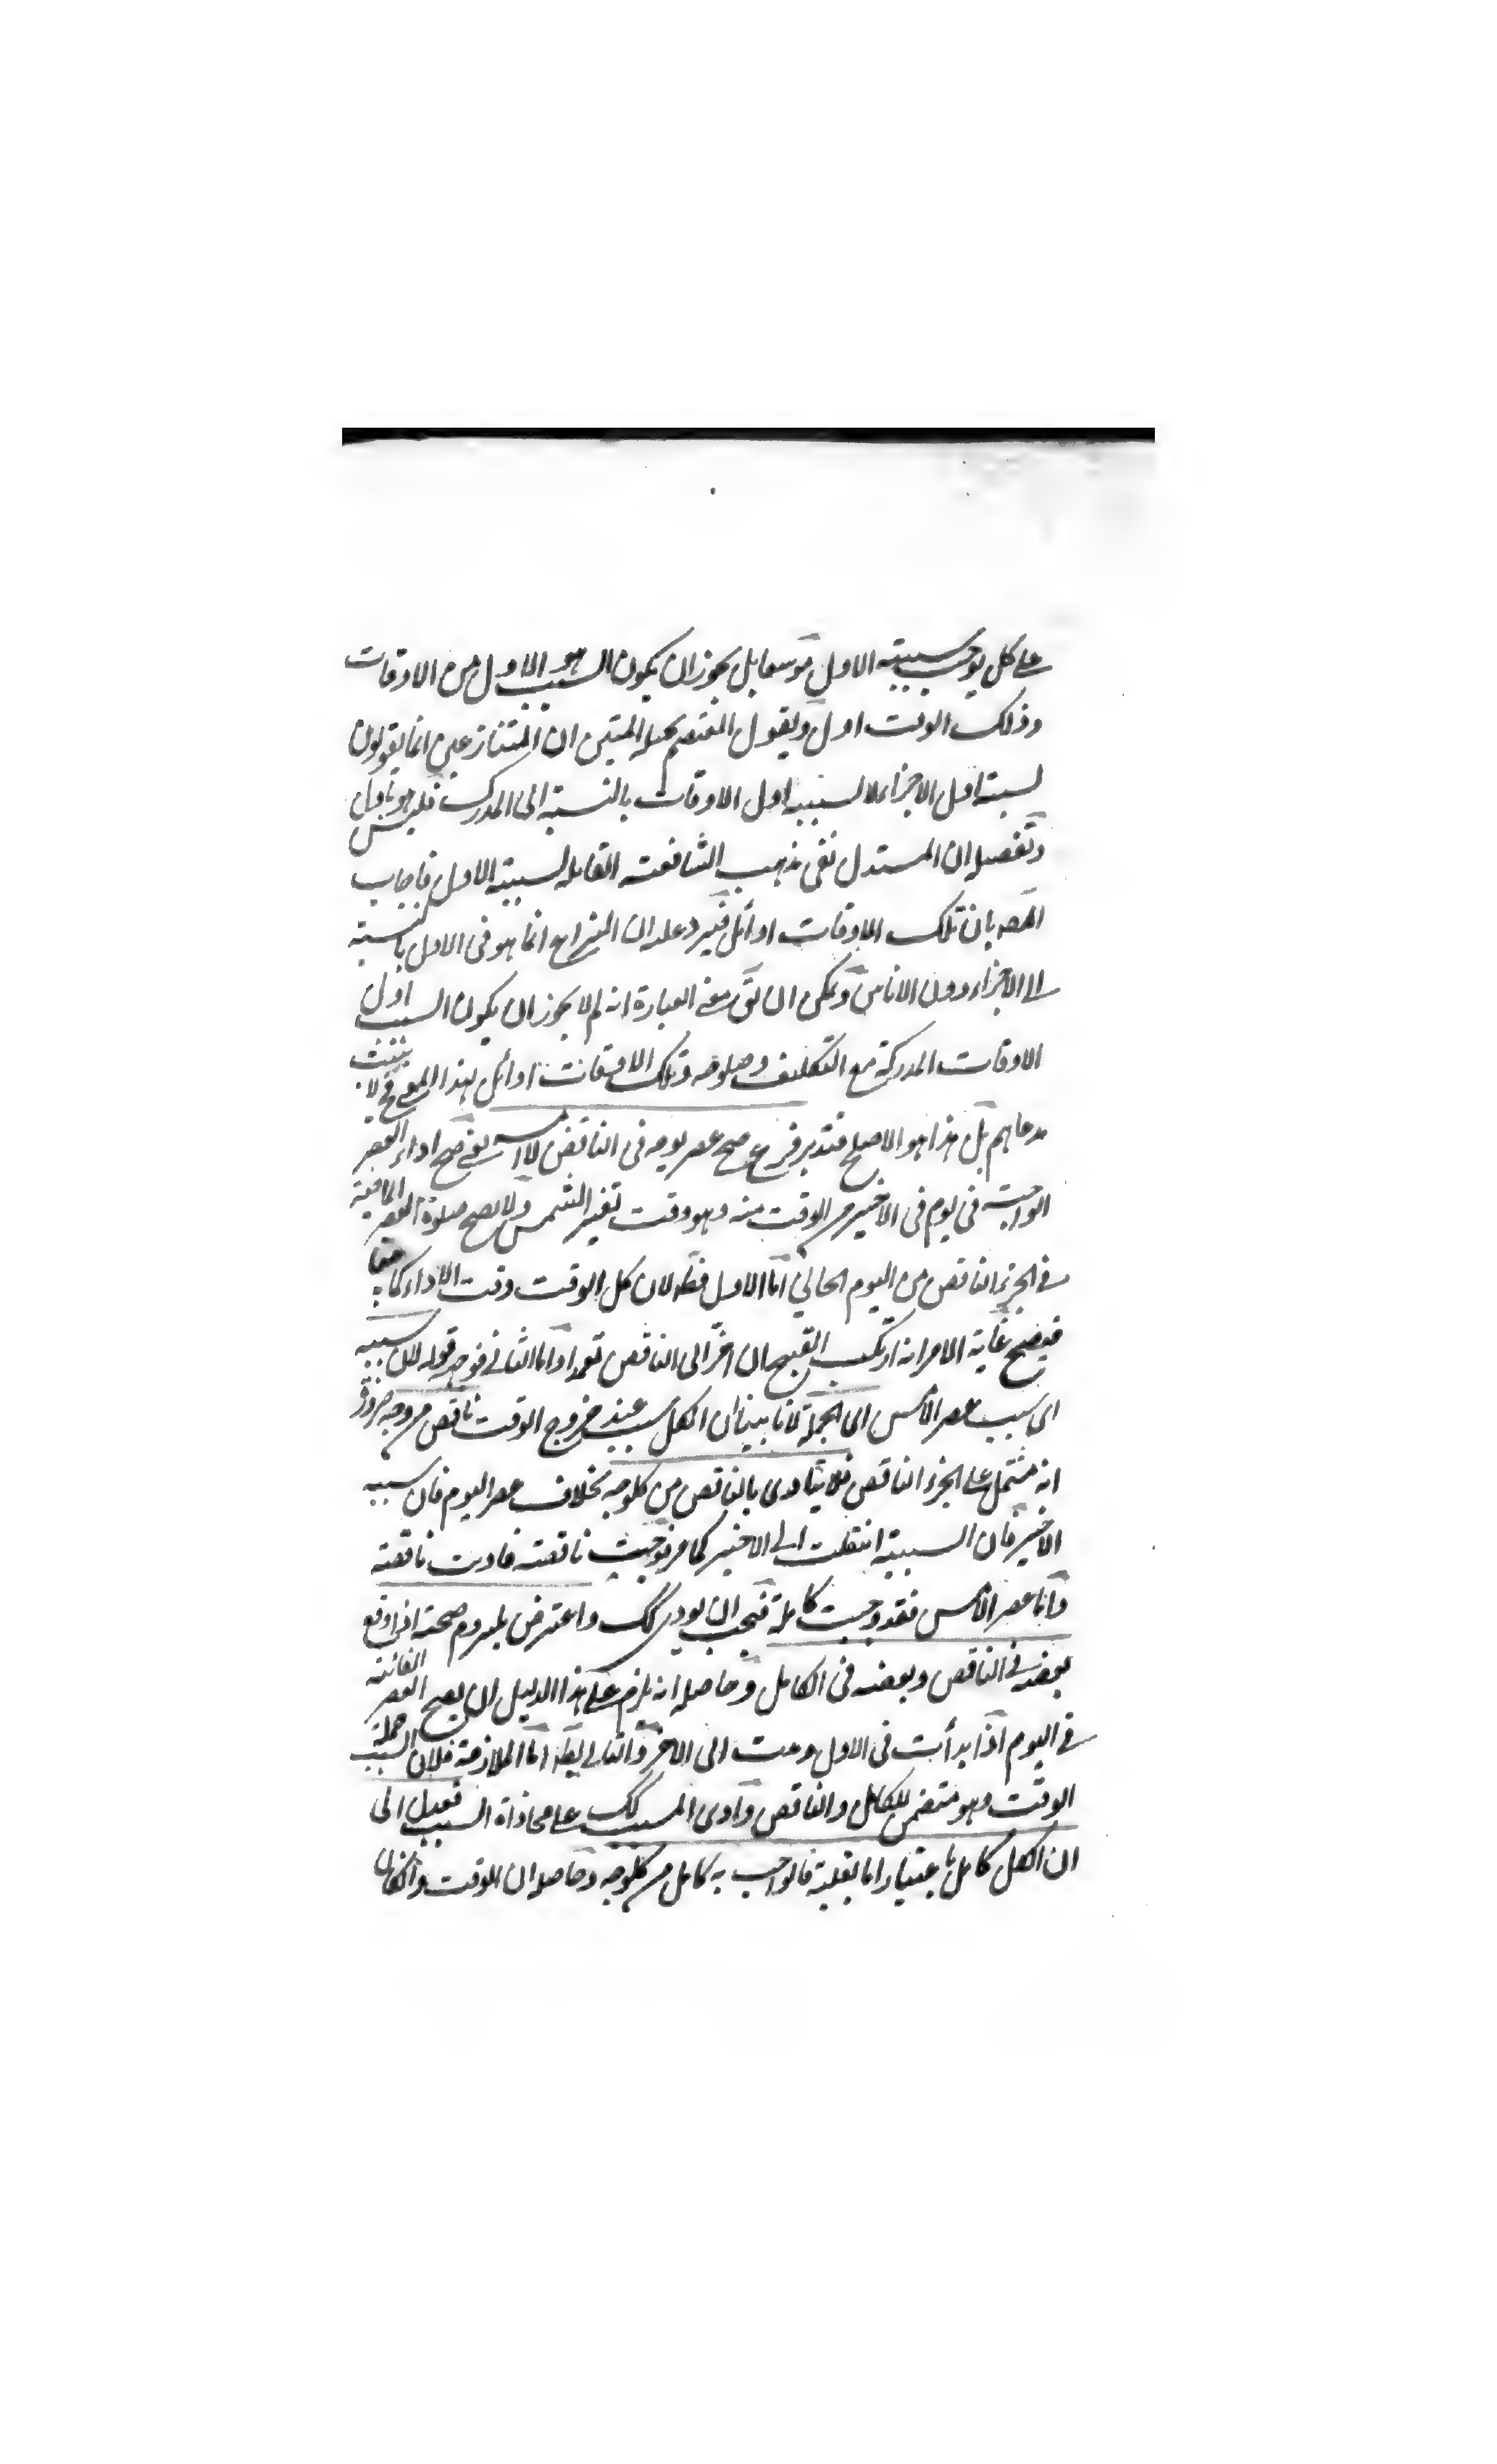 على كل يوجب سببية الاول موسعا بل يجوز ان يكون السبب هو الاول من الاوقات
وذلك الوقت اول ويقول المعتصم بحبله المتين ان المتنازعين انما يقولون
لسببية اول الاجزاء لا لسببية اول الاوقات بالنسبة الى المدرك فليس هو باول
وتفصيله ان المستدل نفى مذهب الشافعية القائلة لسببية الاول فاجاب
المصـ بان تلك الاوقات اوائل فيرد عليه ان النزاع انما هو فى الاول بالنسبة
الى الاجزاء دون الاناس ويمكن ان يق معنى العبارة انه لم لا يجوز ان يكون السبب اول
الاوقات المدركة مع التكليف وصلوحه وتلك الاوقات اوائل بهذا المعنى فح لا يثبت
مدعاهم بل هذا هو الاصلح فتدبر فرع صح عصر يومه فى الناقص لا امسه يعنى صح اداء العصر
الواجبة فى يوم فى الاخير من الوقت منه وهو وقت تغير الشمس ولا يصح صلوة العصر الماضية
فى الجزء الناقص من اليوم الحالي اما الاول فظ لان كل الوقت وقت الاداء كما
فيصح غاية الامر انه ارتكب القبيح ان اخر الى الناقص تعمدا واما الثانى فوجه قوله لان سببه
اى سبب عصر الامس اى الجملة لانا بينا ان الكل سبب عند خروج الوقت ناقص من وجه ضرورة
انه مشتمل على الجزء الناقص فلا يتادى بالناقص من كل وجه بخلاف عصر اليوم فان سببه
الاخير فان السببية انتقلت الى الاخير كما مر فوجبت ناقصة فادت ناقصة
واما عصر الامس فقد وجبت كاملة فيجب ان يودى كك واعترض بلزوم صحته اذا وقع
بعضه فى الناقص وبعضه فى الكامل وحاصله انه يلزم على هذا الدليل ان يصح العصر الفائتة
فى اليوم اذا بدأت فى الاول ومت الى الاخر والتالى بط اما الملازمة فلان السبب جملة
الوقت وهو متضمن للكامل والناقص وادى المسبب كك على محاذاة السبب فعدل الى
ان الكل كامل باعتبار الغلبة فالواجب به كامل من كل وجه وحاصله ان الوقت وان كان